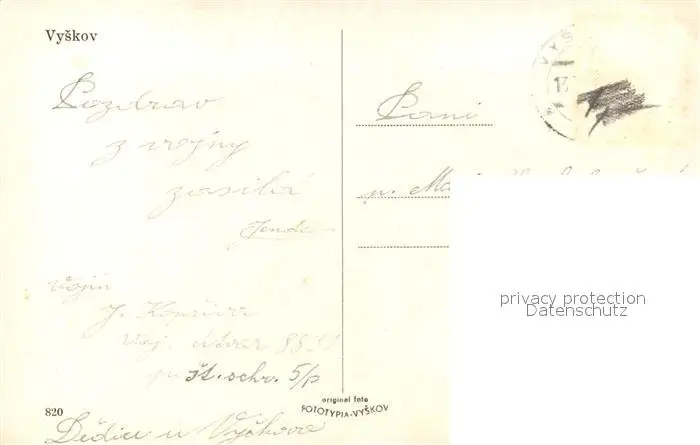 Vyškov
Pozdrav
z vojny
zasílá
Jenda
vojín
J.
voj. útvar
pošt. schr. 5/p
820
Dědice u Vyškova
Paní
original foto
FOTOTYPIA-VYŠKOV
privacy protection
Datenschutz